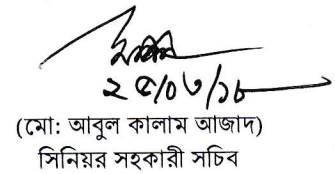 ২৫/০৩/১৮
(মো: আবুল কালাম আজাদ)
সিনিয়র সহকারী সচিব